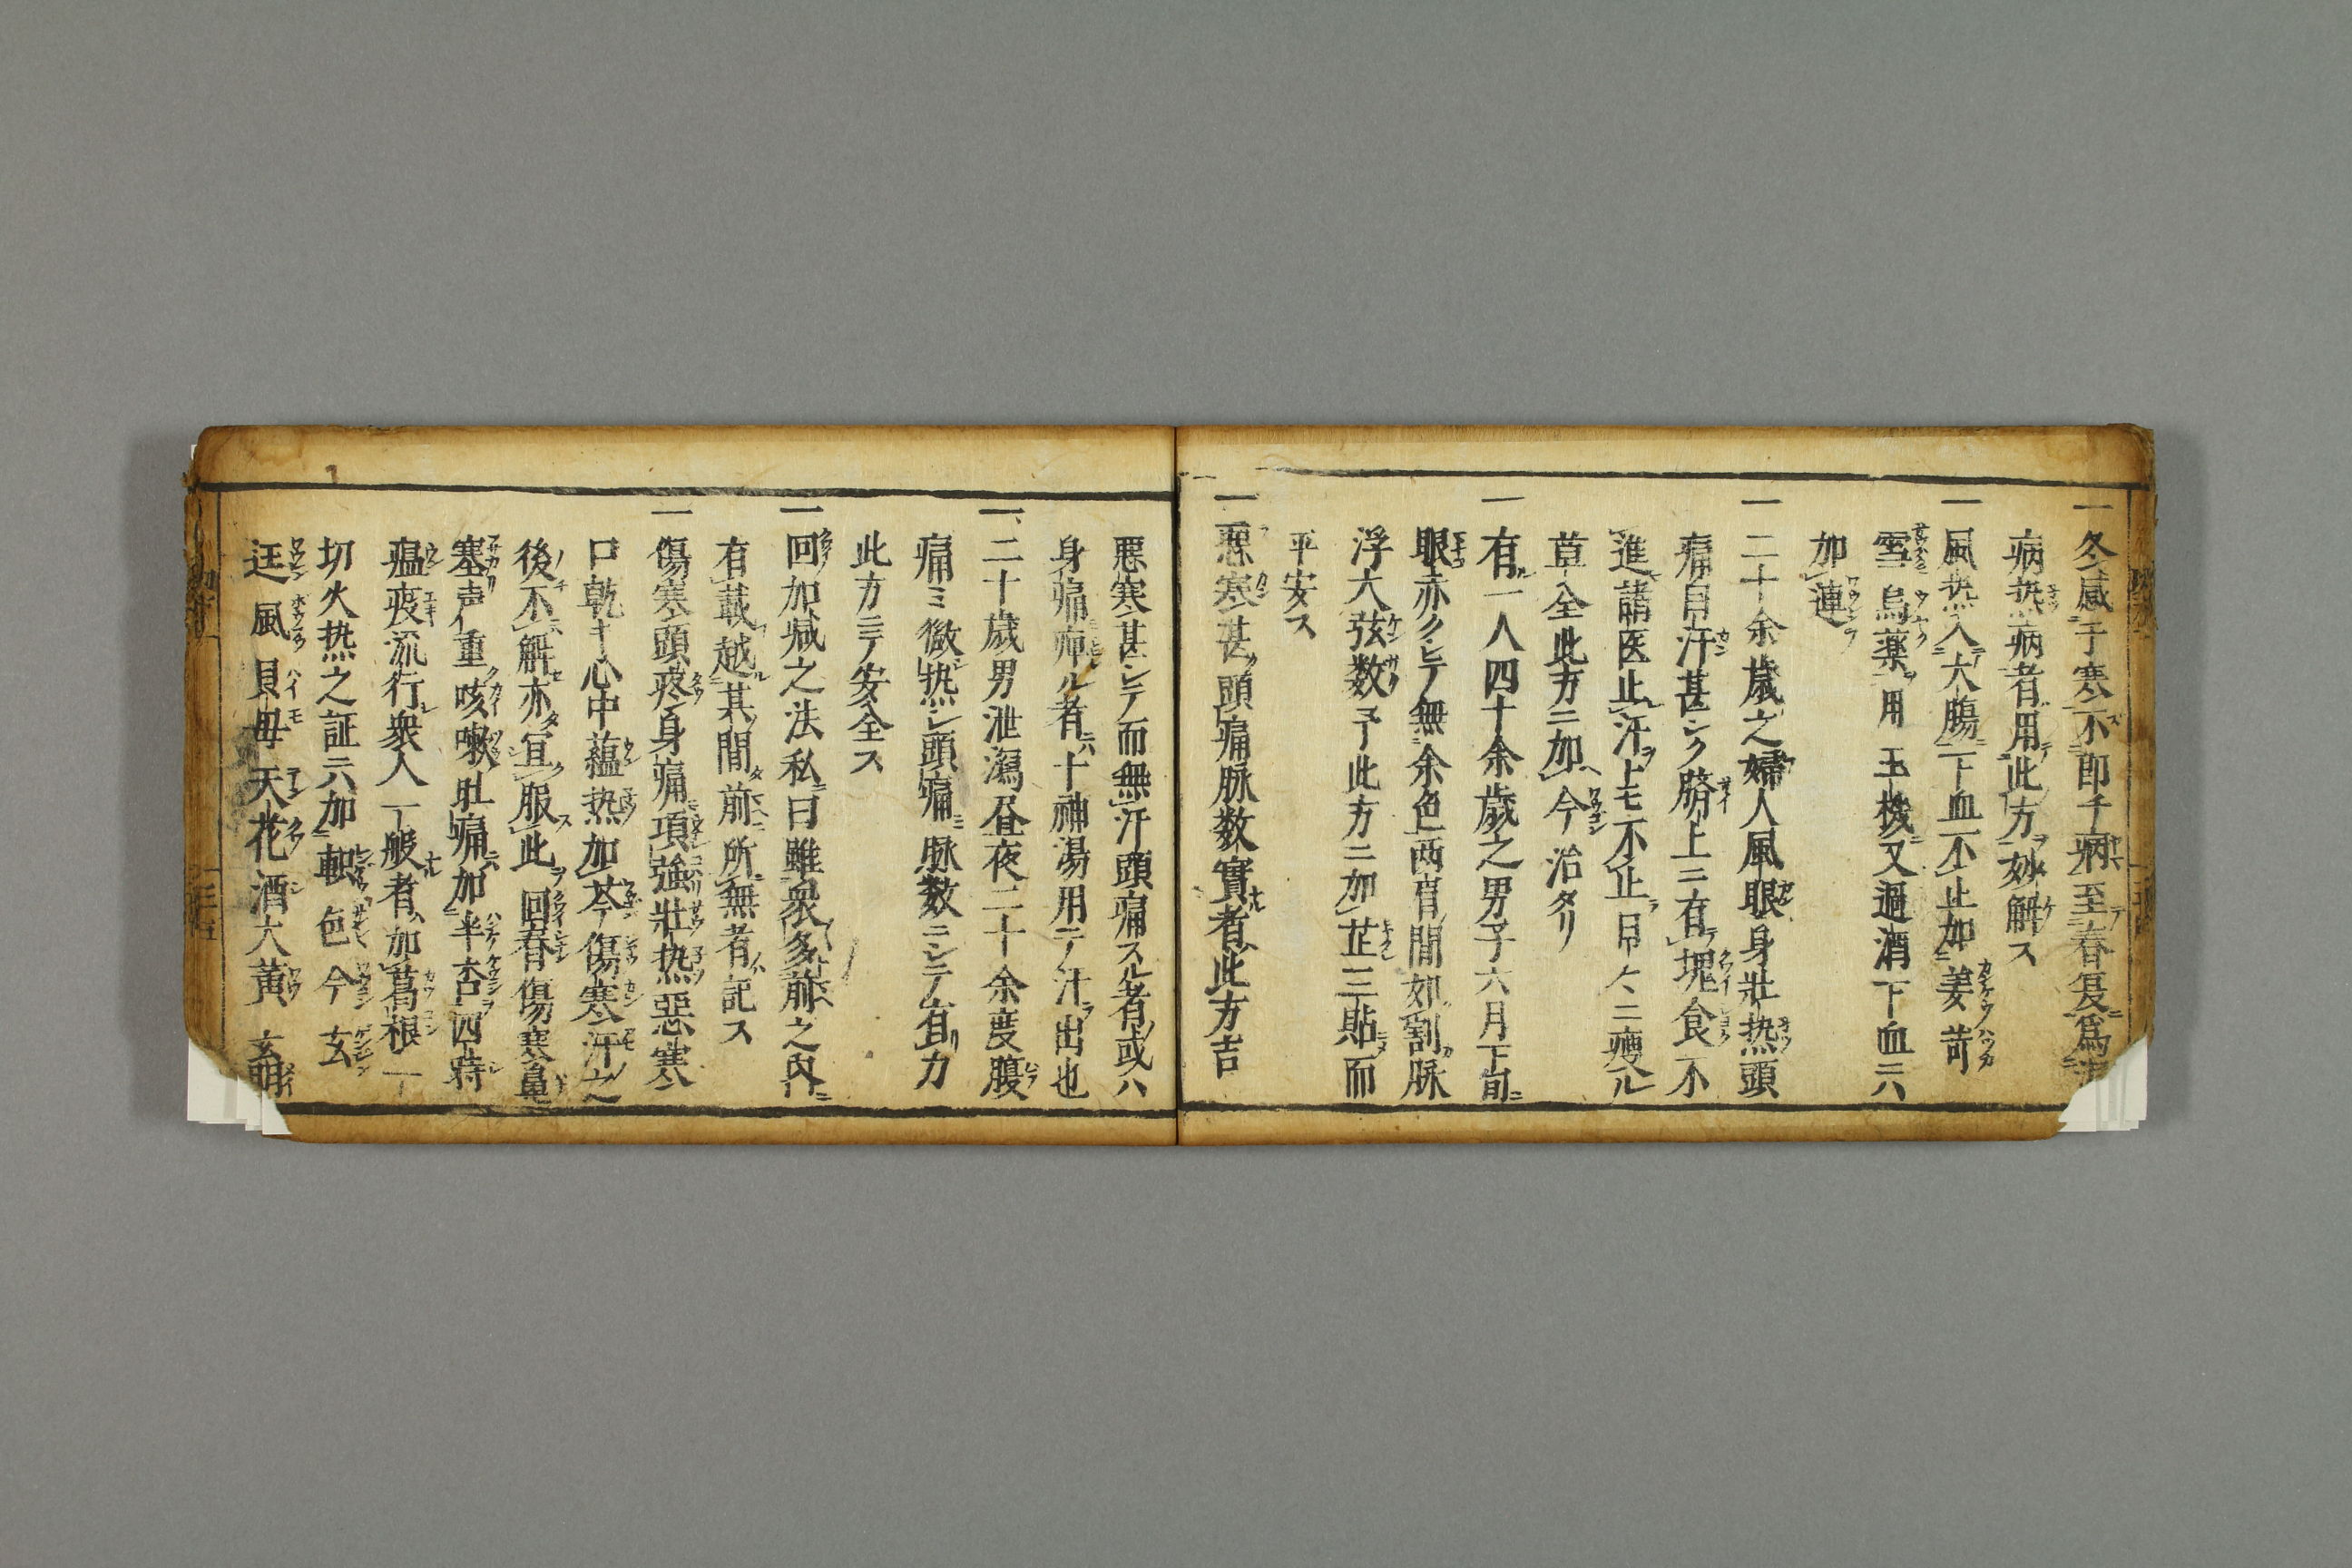 一冬感于寒不即千病至春复為
病热病者用此方妙解ス
一風热入大腸下血不止加姜苛
雪烏薬用玉機又過酒下血ニハ
加連
一二十余歳之婦人風眼身壮热頭
痛自汗甚シク臍上ニ有塊食不
進諸医止汗上モ不止日々ニ痩ル
草全此方ニ加今治タリ
一有一人四十余歳之男子六月下旬
眼赤クシテ無余色両眉間如割脉
浮大弦数予此方ニ加芷三貼而
平安ス
一悪寒甚頭痛脉数實者此方吉
悪寒甚シテ而無汗頭痛スル者或ハ
身痛疼ル者ニハ十神湯用テ汗出也
一二十歳男泄瀉昼夜二十余度腹
痛ミ微热シ頭痛脉数ニシテ有力
此方ニテ安全ス
一回加减之法私曰雖衆多前之內
有載越其間前所無者記ス
一傷寒頭疼身痛項強壮热惡寒
口乾キ心中蘊热加芩傷寒汗之
後不解亦宜服此回春傷寒鼻
塞声重咳嗽肚痛加半杏四時
瘟疫流行衆人一般者加葛根一
切火热之証ニハ加軹色今玄
荊風貝母天花酒大黄玄明